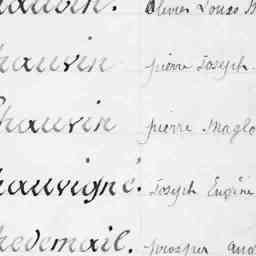 hauvin. Olivier Louis M
hauvin pierre Joseph
Chauvin pierre Maglo
hauvigné. Joseph Eugène
hedemail. prosper